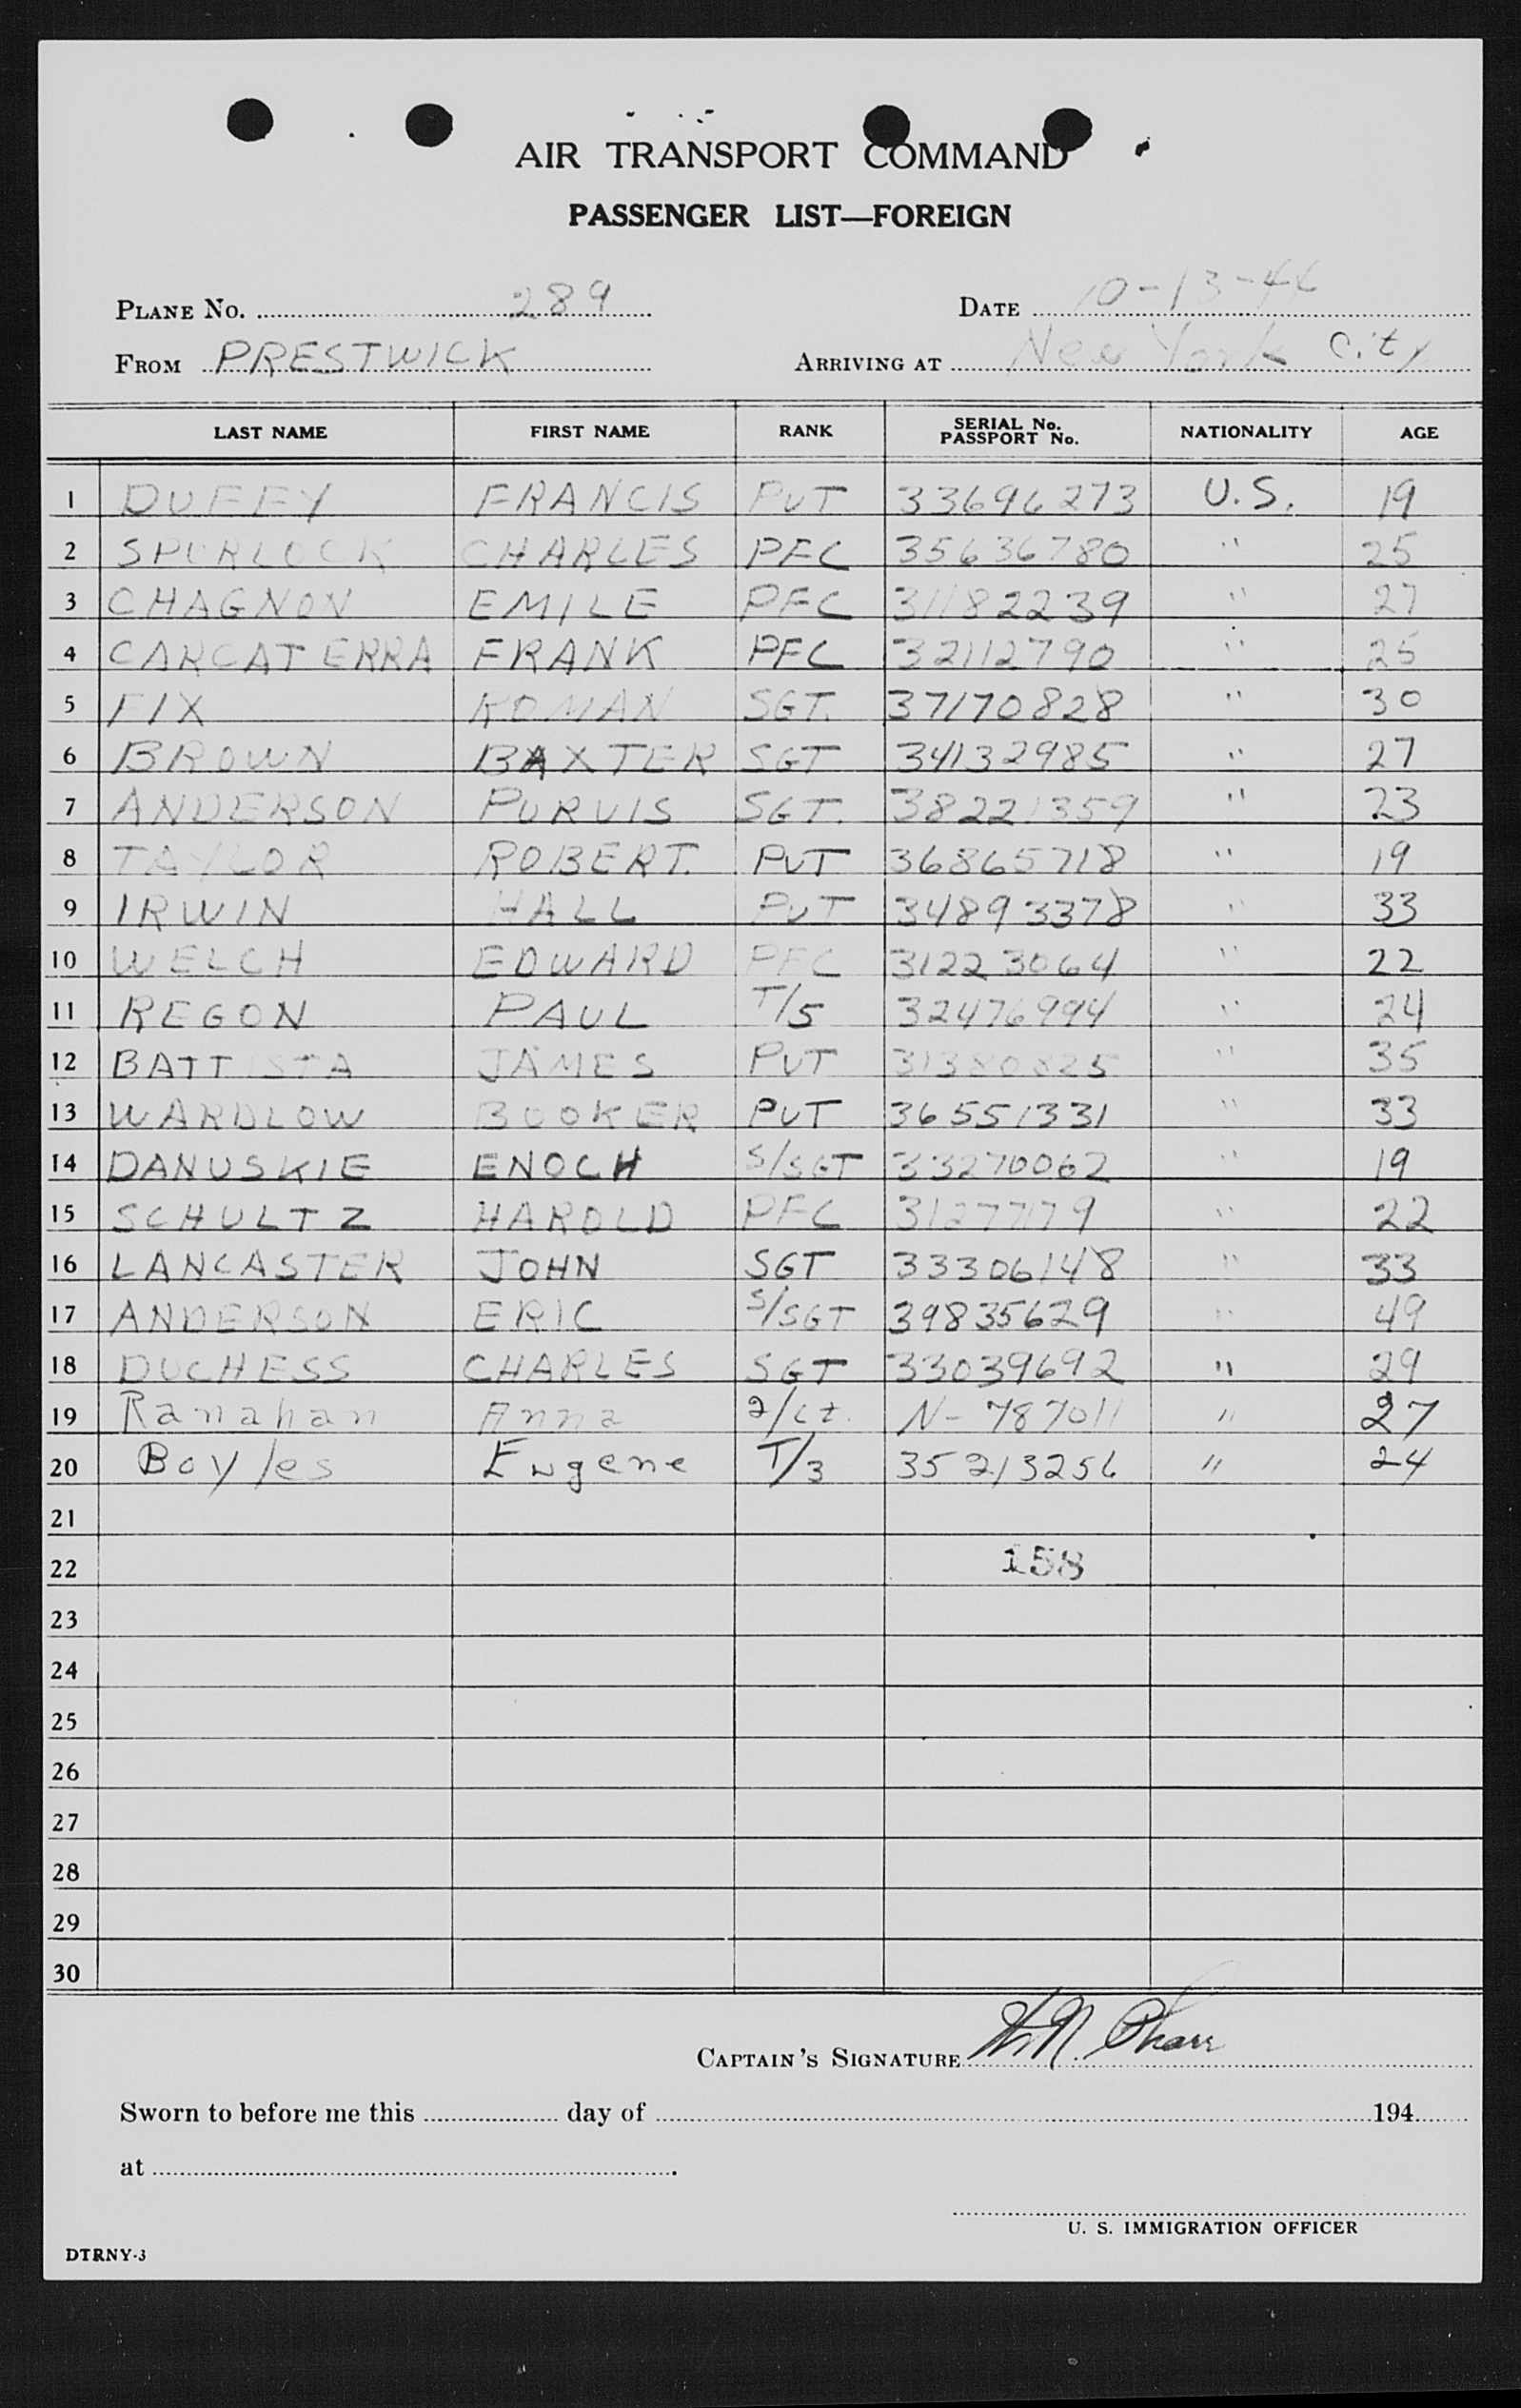 AIR TRANSPORT COMMAND
PASSENGER LIST—FOREIGN
PLANE No. 289 DATE 10-13-44
FROM PRESTWICK ARRIVING AT New York City
LAST NAME FIRST NAME RANK SERIAL No. PASSPORT No. NATIONALITY AGE
1 DUFFY FRANCIS PVT 33696273 U.S. 19
2 SPURLOCK CHARLES PFC 35636780 " 25
3 CHAGNON EMILE PFC 31182239 " 27
4 CARCATERRA FRANK PFC 32112790 " 25
5 FIX ROMAN SGT. 37170828 " 30
6 BROWN BAXTER SGT 34132985 " 27
7 ANDERSON PURVIS SGT. 38221359 " 23
8 TAYLOR ROBERT. PVT 36865718 " 19
9 IRWIN HALL PVT 34893378 " 33
10 WELCH EDWARD PFC 31223064 " 22
11 REGON PAUL T/5 32476994 " 24
12 BATTISTA JAMES PVT 31380825 " 35
13 WARDLOW BOOKER PVT 36551331 " 33
14 DANUSKIE ENOCH S/SGT 33270062 " 19
15 SCHULTZ HAROLD PFC 31277179 " 22
16 LANCASTER JOHN SGT 33306148 " 33
17 ANDERSON ERIC S/SGT 39835629 " 49
18 DUCHESS CHARLES SGT 33039692 " 29
19 Ranahan Anna 2/Lt. N-787011 " 27
20 Boyles Eugene T/3 35213256 " 24
21
22 158
23
24
25
26
27
28
29
30
CAPTAIN'S SIGNATURE Pharr
Sworn to before me this day of 194
at
U. S. IMMIGRATION OFFICER
DTRNY-3